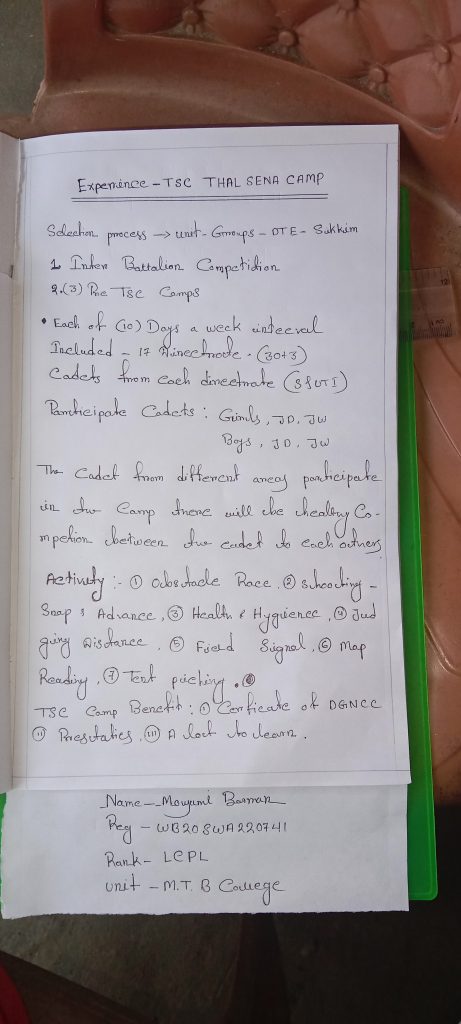 Experience - TSC THAL SENA CAMP
Selection process → unit - Groups - DTE - Sukkim
1. Inter Battalion Competidion
2. (3) Pre TSC Camps
• Each of (10) Days a week inteerval
Included - 17 Direectorate. (30+3)
Cadets from each direectorate
Participate Cadets : Girls, JD, JW
Boys, JD, JW
The Cadet from different areas participate
in the Camp there will be healthy Co-
mpetion between the cadet to each others
Activity :- ① Obstacle Race, ② Shooting -
Snap & Advance, ③ Health & Hygience, ④ Jud
ging Distance, ⑤ Field Signal, ⑥ Map
Reading, ⑦ Tent piching.
TSC Camp Benefit : ① Cerficate of DGNCC
(ii) Presitaties, (iii) A lot to learn.
Name - Moyumi Barman
Reg - WB20SWA220741
Rank - LCPL
Unit - M.T. B College